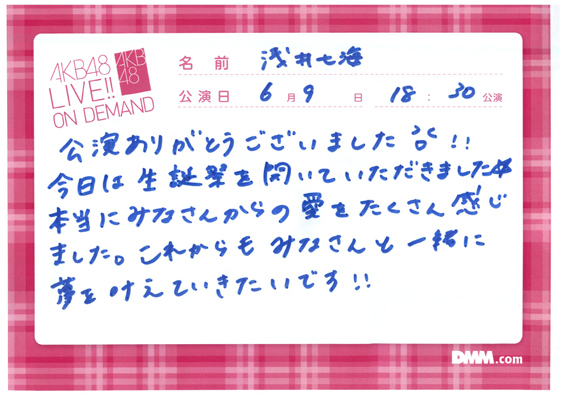 AKB48
LIVE!!
ON DEMAND
AKB
48
名前 浅井七海
公演日 6月9日 18:30公演
公演ありがとうございました!!
今日は生誕祭を開いていただきました
本当にみなさんからの愛をたくさん感じ
ました。これからもみなさんと一緒に
夢を叶えていきたいです!!
DMM.com